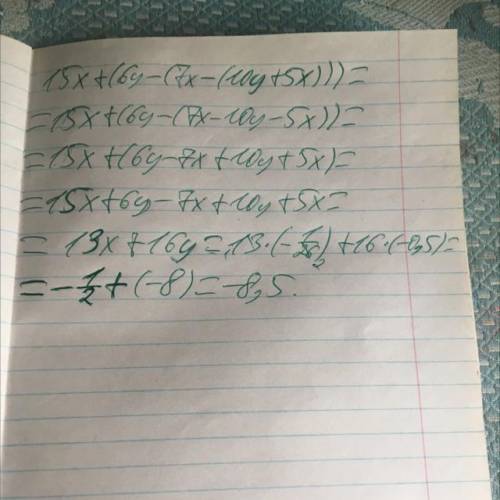 15x+(6y-(7x-(10y+5x)))=
=15x+(6y-(7x-10y-5x))=
=15x+(6y-7x+10y+5x)=
=15x+6y-7x+10y+5x=
=13x+16y=13·(-1/26)+16·(-0,5)=
=-1/2+(-8)=-8,5.